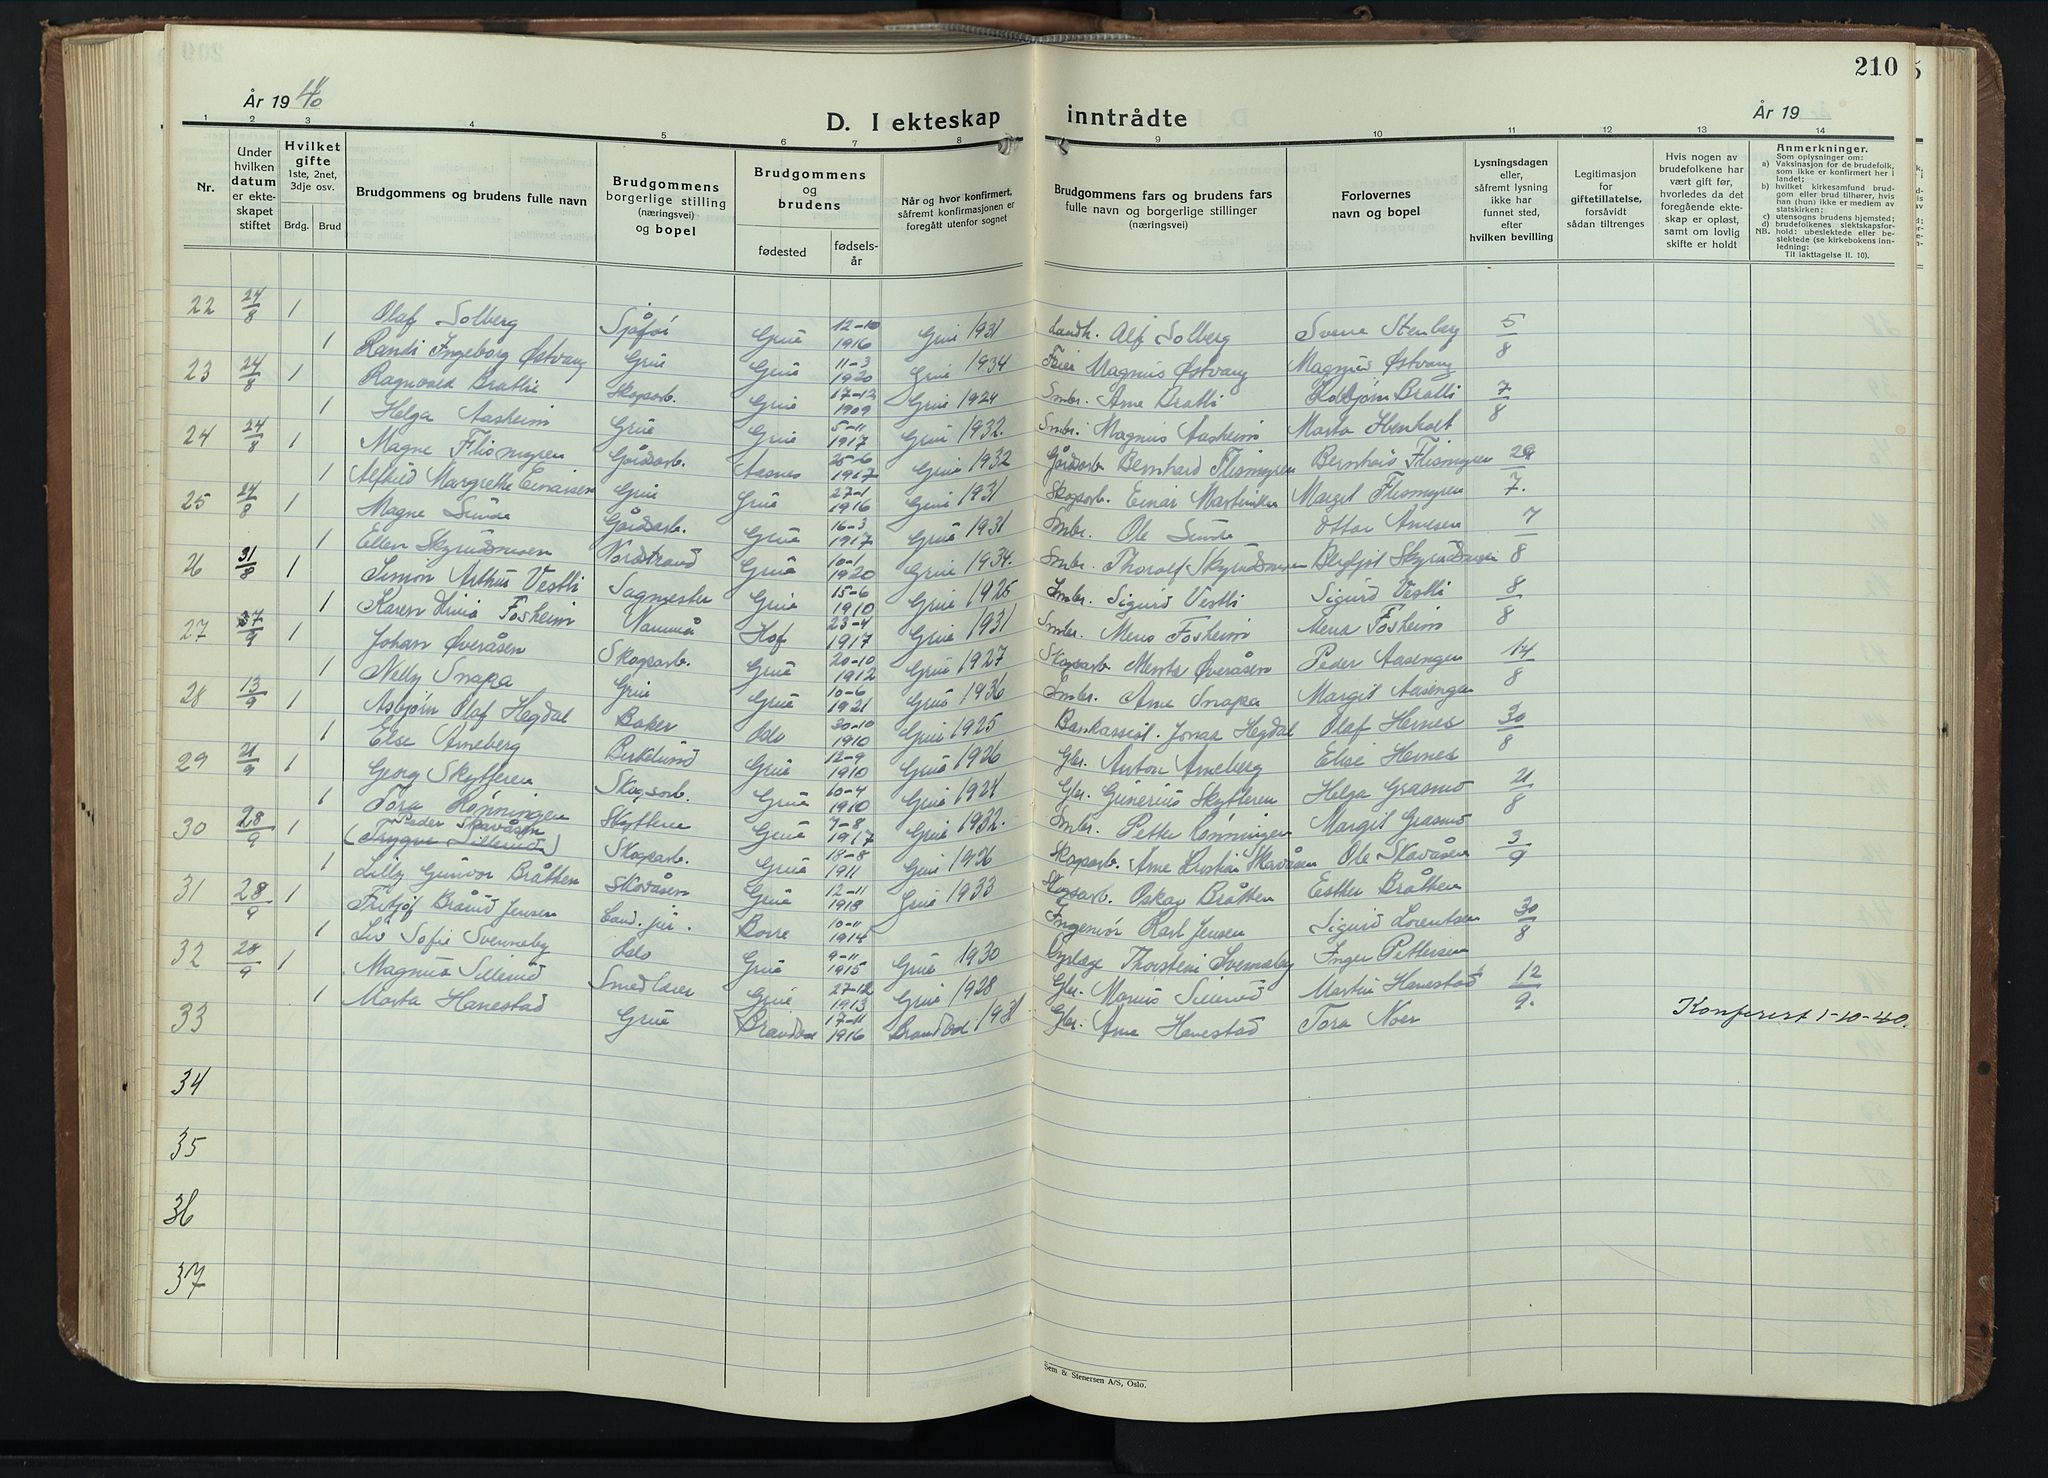 210
År 19 40
D. I ekteskap inntrådte
År 19
1 2 3 4 5 6 7 8 9 10 11 12 13 14
Nr.
Under hvilken datum er ekteskapet stiftet
Hvilket gifte 1ste, 2net, 3dje osv.
Brdg. Brud
Brudgommens og brudens fulle navn
Brudgommens borgerlige stilling (næringsvei) og bopel
Brudgommens og brudens
fødested
fødselsår
Når og hvor konfirmert, såfremt konfirmasjonen er foregått utenfor sognet
Brudgommens fars og brudens fars fulle navn og borgerlige stillinger (næringsvei)
Forlovernes navn og bopel
Lysningsdagen eller, såfremt lysning ikke har funnet sted, efter hvilken bevilling
Legitimasjon for giftetillatelse, forsåvidt sådan tiltrenges
Hvis nogen av brudefolkene har vært gift før, hvorledes da det foregående ekteskap er opløst, samt om lovlig skifte er holdt
Anmerkninger.
Som oplysninger om:
a) Vaksinasjon for de brudefolk, som ikke er konfirmert her i landet;
b) hvilket kirkesamfund brudgom eller brud tilhører, hvis han (hun) ikke er medlem av statskirken;
c) utensogns brudens hjemsted;
d) brudefolkenes slektskapsforhold: ubeslektede eller beslektede (se kirkebokens innledning:
NB. Til iakttagelse II. 10).
22 24/8 1 Olaf Solberg Sjåfør Grue 12-10 1916 Grue 1931 Landh. Alf Solberg Sverre Stenberg 5/8
1 Randi Ingeborg Østvang Grue Grue 11-3 1920 Grue 1934 Feier Magnus Østvang Magnus Østvang
23 24/8 1 Ragnvald Bråtli Skogsarb. Grue 17-12 1909 Grue 1924 Smbr. Arne Bråtli Kolbjørn Bråtli 7/8
1 Helga Aasheim Grue Grue 5-11 1917 Grue 1932. Smbr. Magnus Aasheim Marta
24 24/8 1 Magne Flismyren Gårdsarb. Aasnes 25-6 1917 Grue 1932 Gårdsarb. Bernhard Flismyren Bernhard Flismyren 29/7.
1 Alfhild Margrethe Einarsen Grue Grue 27-1 1916 Grue 1931 Skogsarb. Einar Martinsen Margit Flismyren
25 24/8 1 Magne Sunde Gårdsarb. Grue 16-3 1917 Grue 1931 Smbr. Ole Sunde Ottar Arnesen 7/8
1 Ellen Skyrudsmoen Nordstrand Grue 10-1 1920 Grue 1934. Smbr. Thoralf Skyrudsmoen Bergljot Skyrudsmoen
26 31/8 1 Simon Arthur Vestli Sagmester Grue 15-6 1910 Grue 1925 Smbr. Sigurd Vestli Sigurd Vestli 8/8
1 Karen Livia Fosheim Namnå Hof 23-4 1917 Grue 1931 Smbr. Mens Fosheim Mena Fosheim
27 /9 1 Johan Øveråsen Skogsarb. Grue 20-10 1912 Grue 1927 Skogsarb. Mentz Øveråsen Peder Aasengen 14/8
1 Nelly Snapa Grue Grue 10-6 1921 Grue 1936 Smbr. Arne Snapa Margit Aasengen
28 13/9 1 Asbjørn Olaf Hegdal Baker Oslo 20-10 1910 Grue 1925 Bankassist. Jonas Hegdal Olaf Hernes 30/8
1 Else Arneberg Birkelund Grue 12-9 1910 Grue 1926 Gbr. Anton Arneberg Elise Hernes
29 21/9 1 Georg Skytteren Skogsarb. Grue 10-4 1910 Grue 1924 Gbr. Gunerius Skytteren Helga Grasmo 21/8
1 Tora Rønningen Skytteren Grue 7-8 1917 Grue 1932. Smbr. Petter Rønningen Margit Grasmo
30 28/9 1 Peder Skavåsen (Trygve Sillerud) Skogsarb. Grue 18-8 1911 Grue 1926 Skogsarb. Arne Kristian Skavåsen Ole Skavåsen 3/9
1 Lilly Gunvor Bråthen Skavåsen Grue 12-11 1918 Grue 1933 Skogsarb. Oskar Bråthen Esther Bråthen
31 28/9 1 Fritjof Brånd Jensen Cand. jur. Borre 10-11 1914 Ingeniør Karl Jensen Sigurd Lorentsen 30/8
1 Liv Sofie Svenneby Oslo Grue 9-11 1915 Grue 1930 Thorstein Svenneby Inger Pettersen
32 28/9 1 Magnus Sillerud Smedlærer Grue 27-12 1913 Grue 1928 Gbr. Marius Sillerud Martin Hanestad 12/9.
1 Marta Hanestad Grue Brandval 17-11 1916 Brandval 1931 Gbr. Arne Hanestad Tora Noer
33
Konferert 1-10-40.
34
35
36
37
Sem & Stenersen A/S, Oslo.